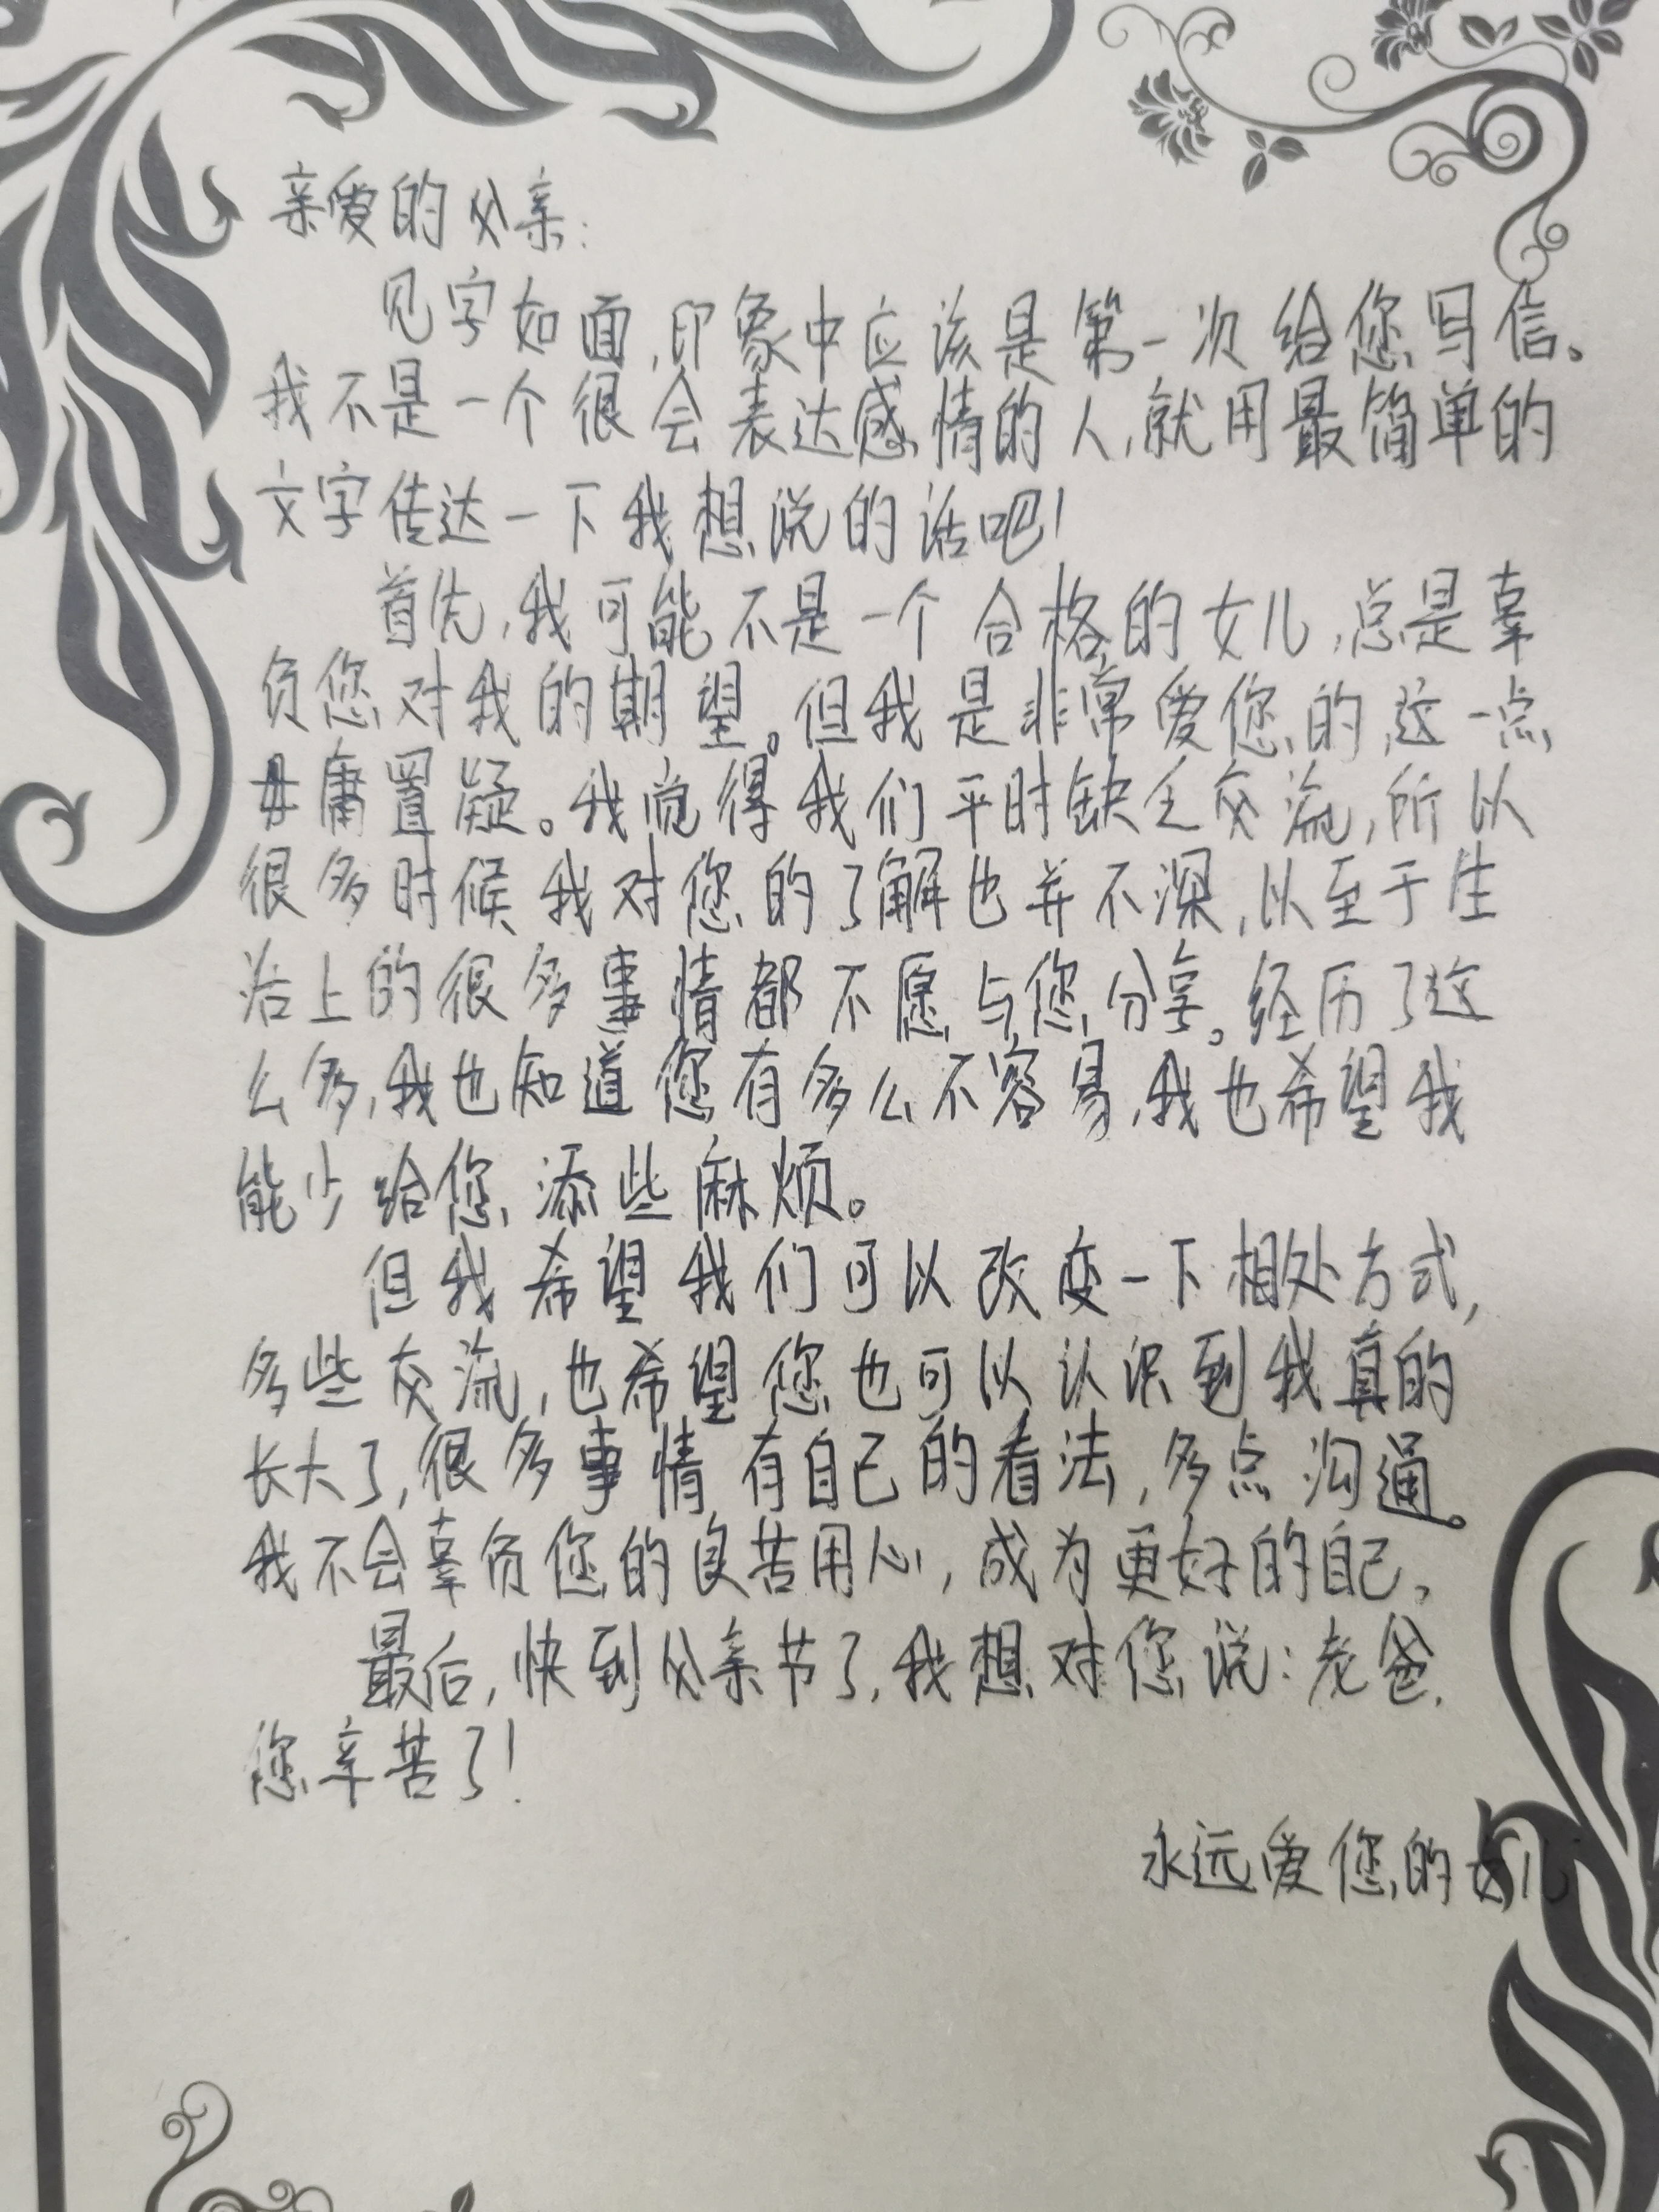 亲爱的父亲：
见字如面，印象中应该是第一次给您写信。
我不是一个很会表达感情的人，就用最简单的
文字传达一下我想说的话吧！
首先，我可能不是一个合格的女儿，总是辜
负您对我的期望。但我是非常爱您的，这一点
毋庸置疑。我觉得我们平时缺乏交流，所以
很多时候我对您的了解也并不深，以至于生
活上的很多事情都不愿与您分享。经历了这
么多，我也知道您有多么不容易，我也希望我
能少给您添些麻烦。
但我希望我们可以改变一下相处方式，
多些交流，也希望您也可以认识到我真的
长大了，很多事情有自己的看法，多点沟通。
我不会辜负您的良苦用心，成为更好的自己。
最后，快到父亲节了，我想对您说：老爸，
您辛苦了！
永远爱您的女儿